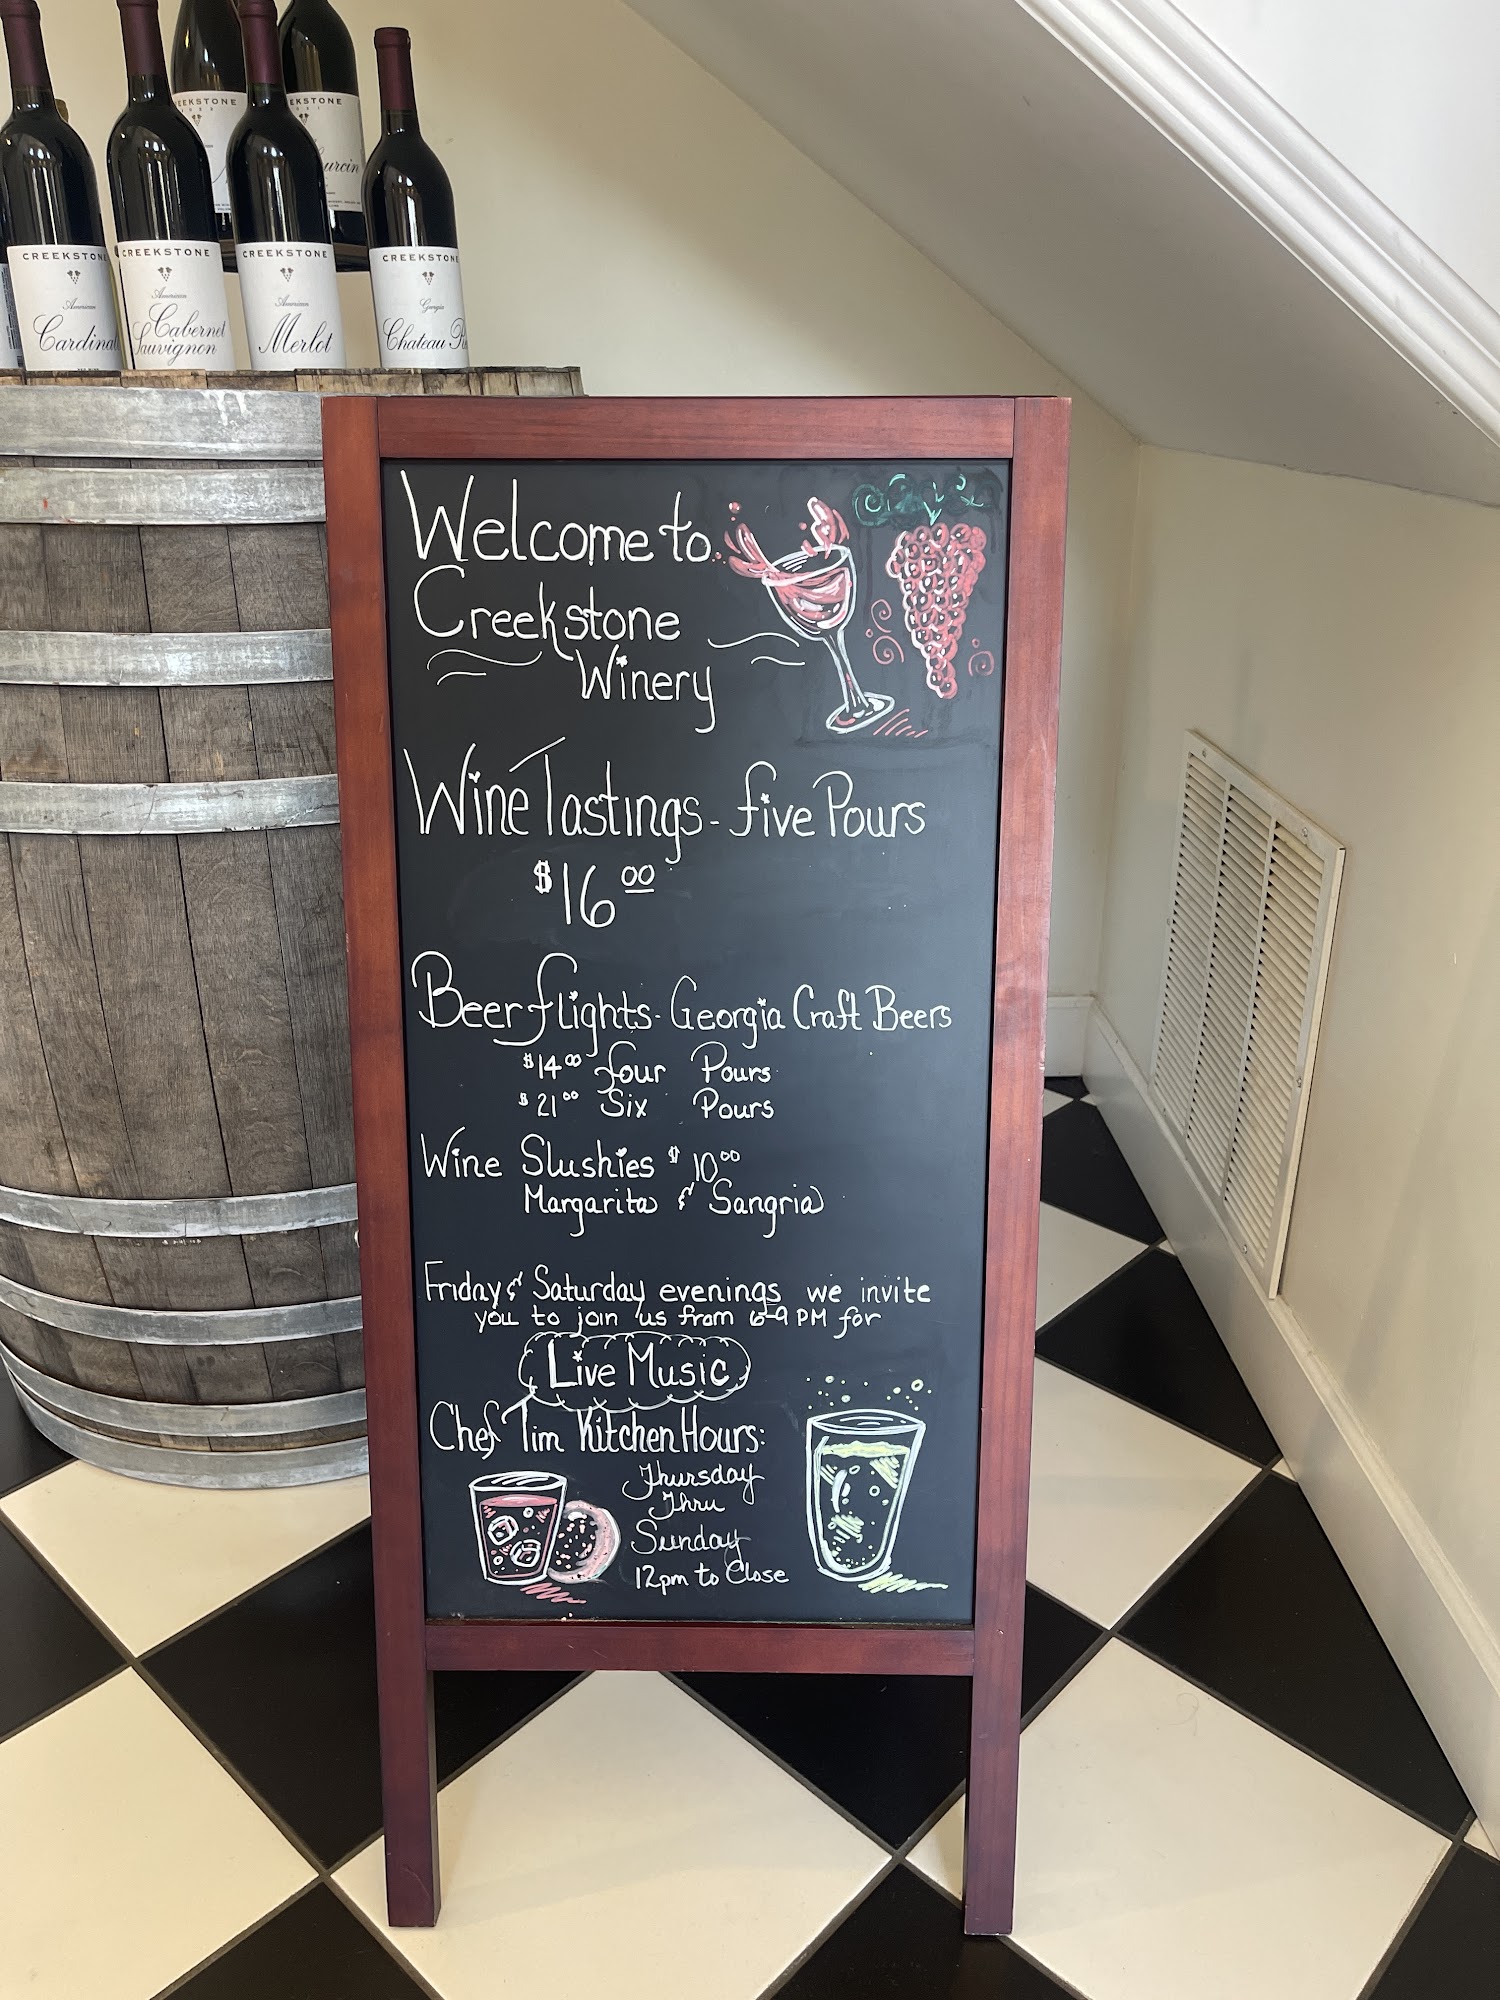 CREEKSTONE
American
Cardinal
CREEKSTONE
American
Cabernet
Sauvignon
CREEKSTONE
American
Merlot
CREEKSTONE
Georgia
Chateau
EEKSTONE
EKSTONE
urcin
Welcome to
Creekstone
Winery
Wine Tastings - five Pours
$16.00
Beer flights - Georgia Craft Beers
$14.00 four Pours
$21.00 Six Pours
Wine Slushies $10.00
Margarita & Sangria
Friday & Saturday evenings we invite
you to join us from 6-9 PM for
Live Music
Chef Tim Kitchen Hours:
Thursday
Thru
Sunday
12pm to Close